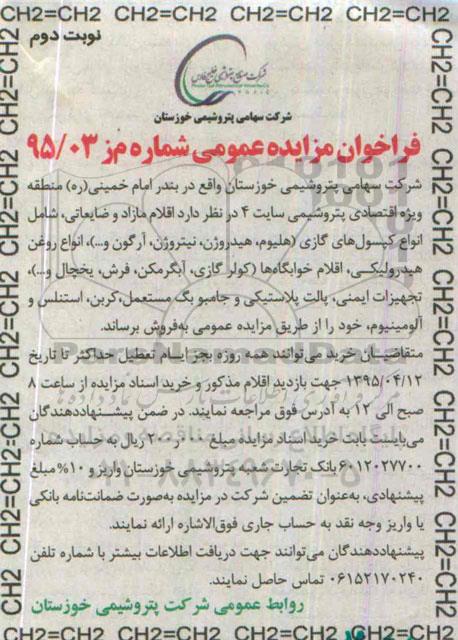 CH2=CH2 CH2=CH2 CH2=CH2 CH2=CH2
نوبت دوم
شرکت صنایع پتروشیمی خلیج فارس
شرکت سهامی پتروشیمی خوزستان
فراخوان مزایده عمومی شماره م‌ز ۹۵/۰۳
شرکت سهامی پتروشیمی خوزستان واقع در بندر امام خمینی(ره) منطقه
ویژه اقتصادی پتروشیمی سایت ۴ در نظر دارد اقلام مازاد و ضایعاتی، شامل
انواع کپسول‌های گازی (هلیوم، هیدروژن، نیتروژن، آرگون و...)، انواع روغن
هیدرولیکی، اقلام خوابگاه‌ها (کولر گازی، آبگرمکن، فرش، یخچال و...)،
تجهیزات ایمنی، پالت پلاستیکی و جامبو بگ مستعمل،کربن، استنلس و
آلومینیوم، خود را از طریق مزایده عمومی به‌فروش برساند.
متقاضیان خرید می‌توانند همه روزه بجز ایام تعطیل حداکثر تا تاریخ
۱۳۹۵/۰۴/۱۲ جهت بازدید اقلام مذکور و خرید اسناد مزایده از ساعت ۸
صبح الی ۱۲ به آدرس فوق مراجعه نمایند. در ضمن پیشنهاددهندگان
می‌بایست بابت خرید اسناد مزایده مبلغ ۲۰۰٫۰۰۰ ریال به حساب شماره
۶۰۱۲۰۲۷۷۰۰ بانک تجارت شعبه پتروشیمی خوزستان واریز و ۱۰% مبلغ
پیشنهادی، به‌عنوان تضمین شرکت در مزایده به‌صورت ضمانت‌نامه بانکی
یا واریز وجه نقد به حساب جاری فوق‌الاشاره ارائه نمایند.
پیشنهاددهندگان می‌توانند جهت دریافت اطلاعات بیشتر با شماره تلفن
۰۶۱۵۲۱۷۰۲۴۰ تماس حاصل نمایند.
روابط عمومی شرکت پتروشیمی خوزستان
CH2=CH2 CH2=CH2 CH2=CH2 CH2=CH2